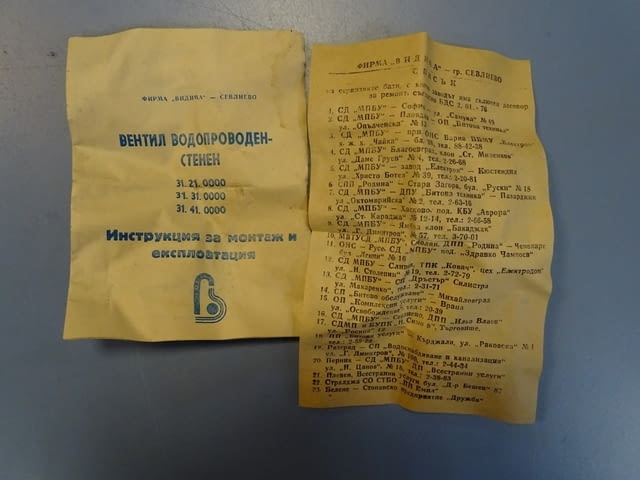 ФИРМА „ВИДИМА" — СЕВЛИЕВО
ВЕНТИЛ ВОДОПРОВОДЕН-
СТЕНЕН
31. 21. 0000
31. 31. 0000
31. 41. 0000
Инструкция за монтаж и
експлоатация
ФИРМА „ВИДИМА" — гр. СЕВЛИЕВО
СПИСЪК
на сервизните бази, с които заводът има сключен договор
за ремонт, съгласно БДС 2, 01. - 76
1. СД „МПБУ" — София, ул.
2. СД „МПБУ" — Пловдив — ОП „Битова техника"
ул.
3. СД „МПБУ" — при ОНС Варна
ж. к. „Чайка" — бл. тел. 88-42-38
4. СД „МПБУ" Благоевград, клон „Ст. Мизенков"
ул. „Даме Груев" № 4, тел. 2-26-68
5. СД „МПБУ" — завод „Електрон" — Кюстендил
ул. „Христо Ботев" № 39, тел. 2-20-81
6. СПП „Родина" — Стара Загора, бул. „Руски" № 18
7. СД „МПБУ" — ДПУ „Битова техника" — Пазарджик
ул. „Октомврийска" № 2, тел. 2-63-16
8. СД „МПБУ" — Хасково, под. КБУ „Аврора"
ул. „Ст. Караджа" № 12-14, тел.: 2-66-58
9. СД „МПБУ" — Ямбол клон „Бакаджик"
ул. „Г. Димитров", № 57, тел. 3-70-01
10. МВТУСД „МПБУ" — Смолян, ДПП „Родина" — Чепеларе
11. ОНС — Русе, СД „МПБУ" под. „Здравко Чампоев"
бул. „Ленин" № 16
12. СД МПБУ — Сливен, ТПК „Ковач", цех „Електродом"
ул. „Н. Столетии" № 19, тел. 2-72-79
13. СД МПБУ — СП „Дръстър" Силистра
ул. Макаренко", тел.: 2-31-71
14. СП „Битово обслужване" — Михайловград
15. ОП „Комплексни услуги" — Враца
ул. „Освобождение" тел.: 20-39
16. СД „МПБУ" — Сандево, ДПП „Илю Влаев"
17. СДМП и БУПК „Н. Симов", Търговище,
18. ПП „Битови услуги" — Кърджали, ул. „Раковска" № 1
19. Разград — СП „Водоснабдяване и канализация"
ул. „Г. Димитров", № 100, тел.: 2-44-34
20. Перник — СД „МПБУ" ДП „Всестранни услуги"
ул. „Н. Цанов", № 18, тел.: 2-38-83
21. Плевен, Всестранни услуги бул. „Д-р Бешев" 87
22. Стралджа СО СТБО „НП Емил"
23. Белене — Стопанско предприятие „Дружба"